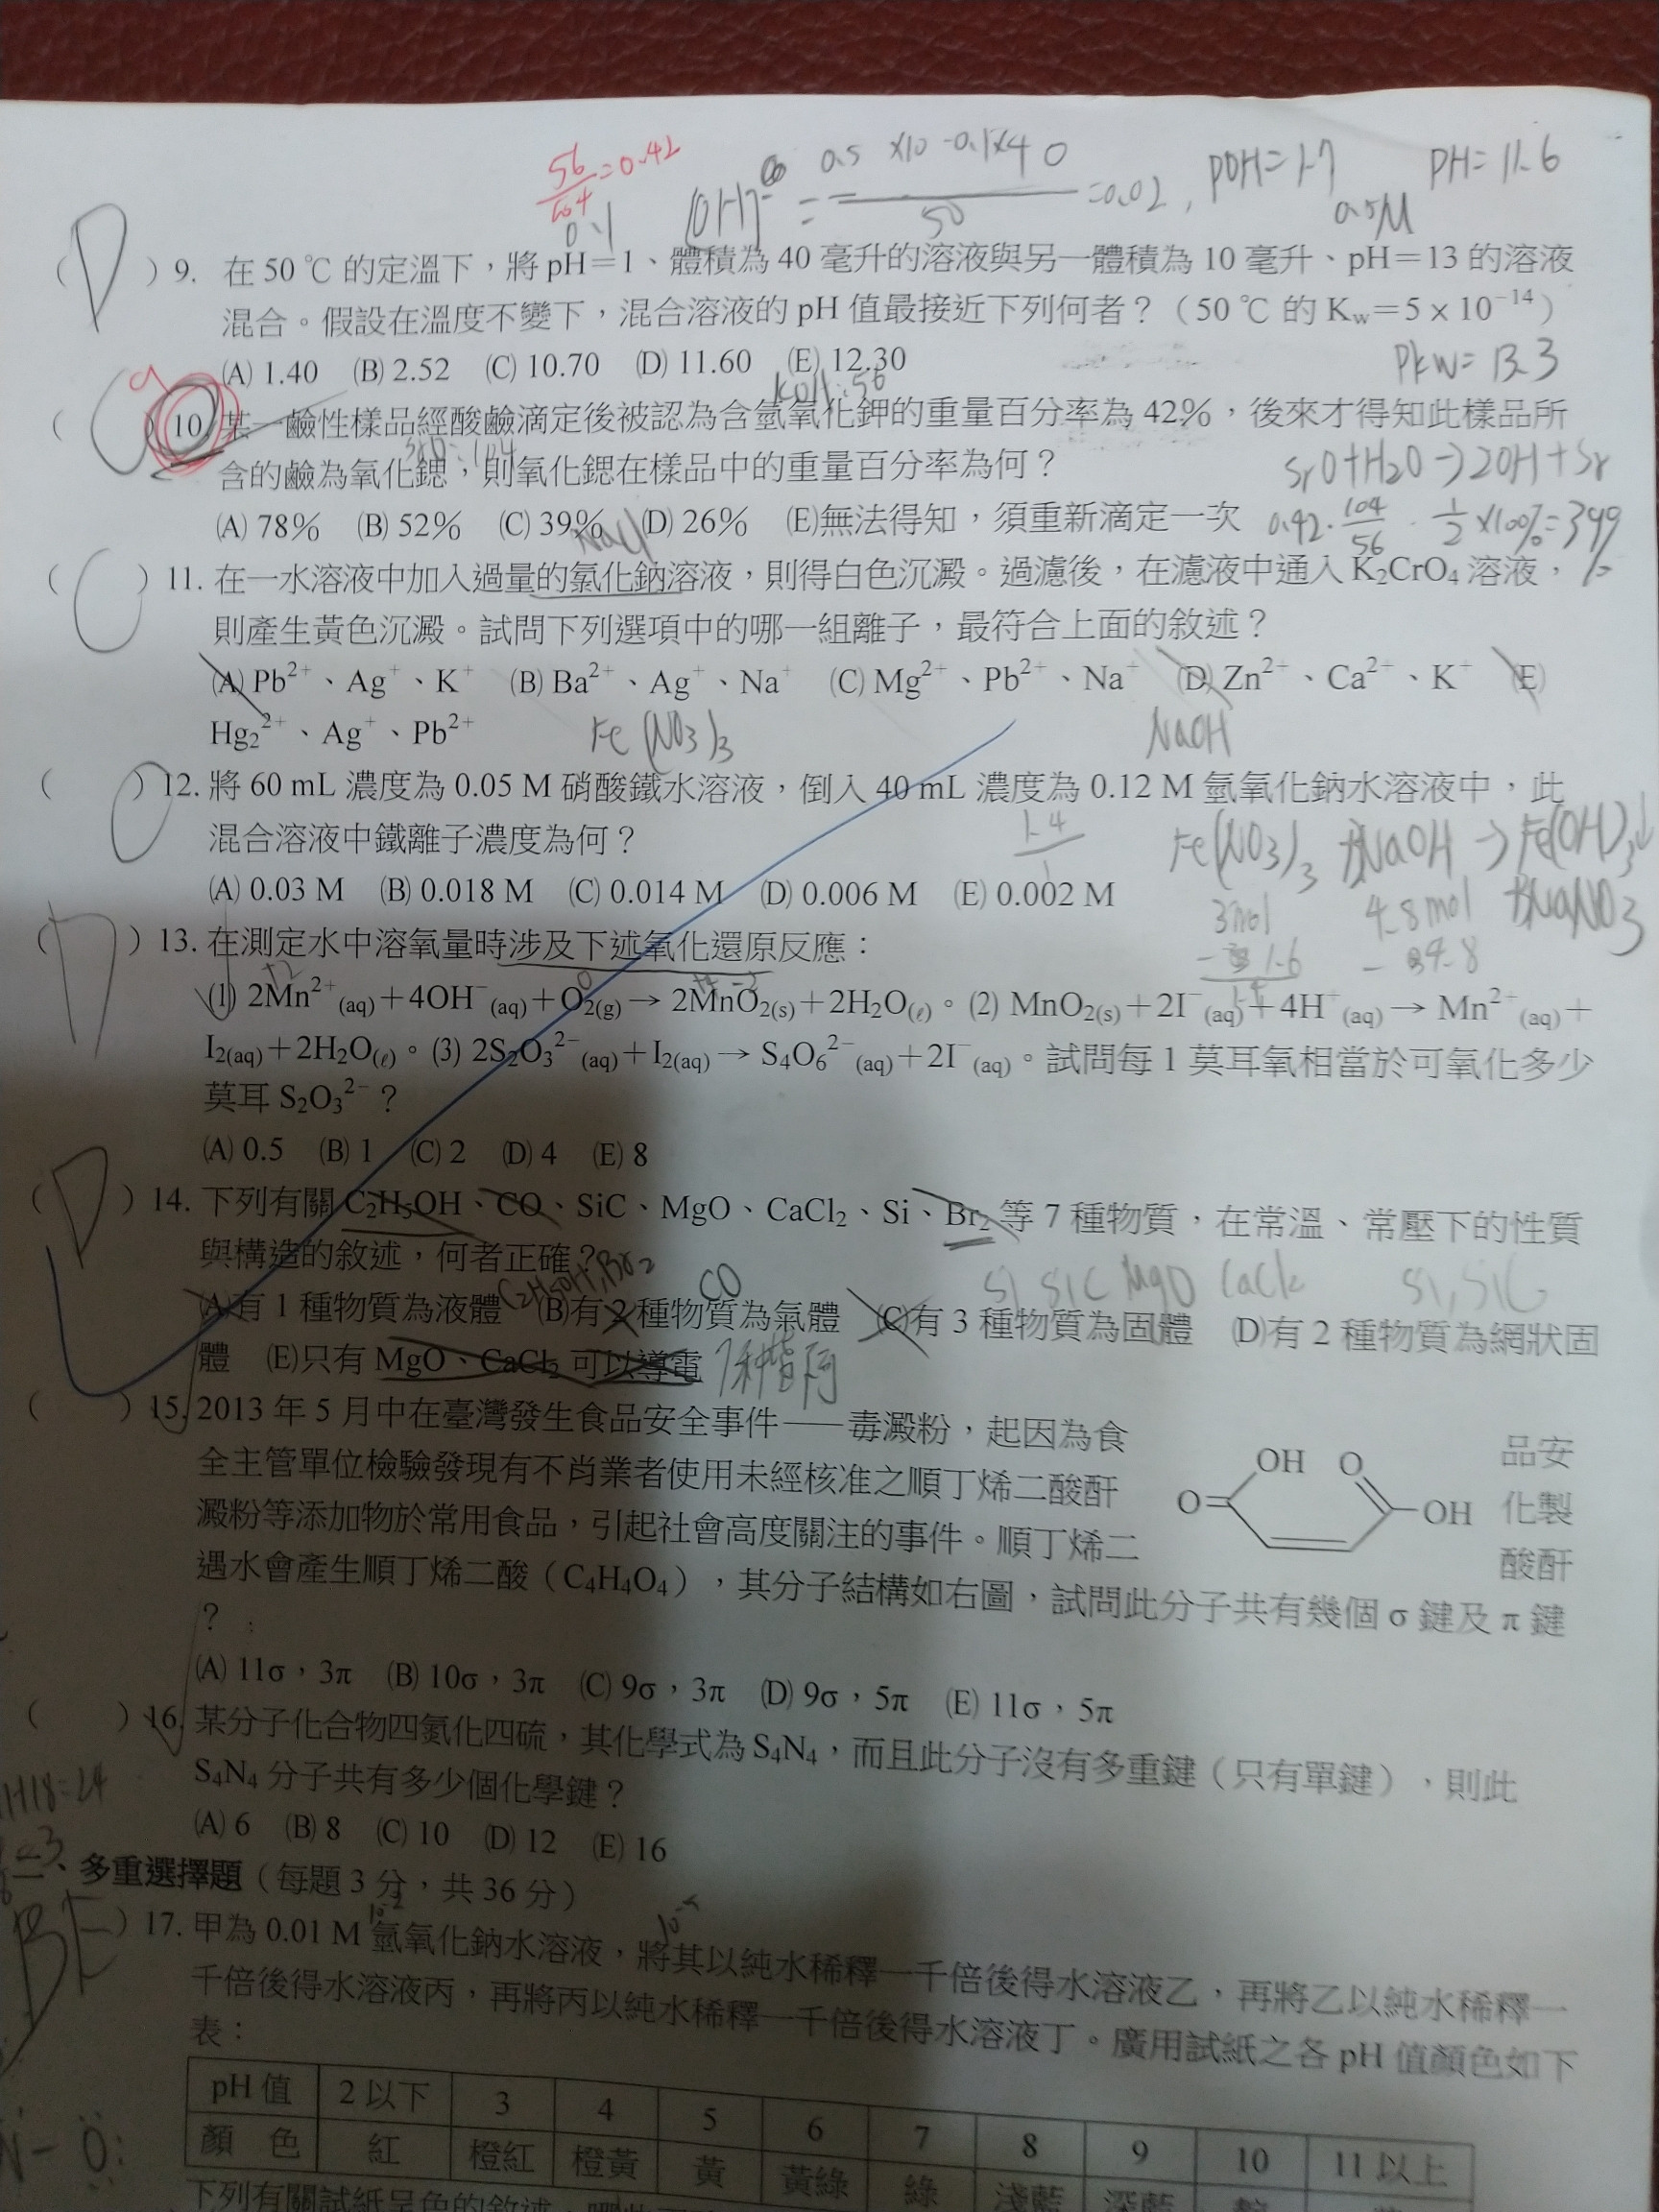 56/104=0.42
[OH]= 0.5 ×10 -0.1×4 0 / 50 =0.02, pOH=1.7 PH=11.6
0.1
0.5M
(D) 9. 在 50 ℃ 的定溫下，將 pH=1、體積為 40 毫升的溶液與另一體積為 10 毫升、pH=13 的溶液
混合。假設在溫度不變下，混合溶液的 pH 值最接近下列何者？（50 ℃ 的 Kw=5 × 10⁻¹⁴）
(A) 1.40 (B) 2.52 (C) 10.70 (D) 11.60 (E) 12.30
PKw=13.3
KOH:56
(C) 10. 某一鹼性樣品經酸鹼滴定後被認為含氫氧化鉀的重量百分率為 42%，後來才得知此樣品所
SrO=104
含的鹼為氧化鍶，則氧化鍶在樣品中的重量百分率為何？
SrO+H2O→2OH+Sr
(A) 78% (B) 52% (C) 39% (D) 26% (E)無法得知，須重新滴定一次
0.42·104/56·1/2×100%=39%
NaCl
(C) 11. 在一水溶液中加入過量的氯化鈉溶液，則得白色沉澱。過濾後，在濾液中通入 K₂CrO₄ 溶液，
則產生黃色沉澱。試問下列選項中的哪一組離子，最符合上面的敘述？
(A) Pb²⁺、Ag⁺、K⁺ (B) Ba²⁺、Ag⁺、Na⁺ (C) Mg²⁺、Pb²⁺、Na⁺ (D) Zn²⁺、Ca²⁺、K⁺ (E)
Hg₂²⁺、Ag⁺、Pb²⁺
Fe(NO3)3 NaOH
( ) 12. 將 60 mL 濃度為 0.05 M 硝酸鐵水溶液，倒入 40 mL 濃度為 0.12 M 氫氧化鈉水溶液中，此
混合溶液中鐵離子濃度為何？
1.4
Fe(NO3)3 + 3NaOH → Fe(OH)3↓
+3NaNO3
(A) 0.03 M (B) 0.018 M (C) 0.014 M (D) 0.006 M (E) 0.002 M
3mol 4.8mol
-1.6 -4.8
1.4
(D) 13. 在測定水中溶氧量時涉及下述氧化還原反應：
+2 0 +4 -2
(1) 2Mn²⁺(aq)+4OH⁻(aq)+O₂(g)→ 2MnO₂(s)+2H₂O(ℓ)。(2) MnO₂(s)+2I⁻(aq)+4H⁺(aq)→ Mn²⁺(aq)+
I₂(aq)+2H₂O(ℓ)。(3) 2S₂O₃²⁻(aq)+I₂(aq)→ S₄O₆²⁻(aq)+2I⁻(aq)。試問每 1 莫耳氧相當於可氧化多少
莫耳 S₂O₃²⁻？
(A) 0.5 (B) 1 (C) 2 (D) 4 (E) 8
(D) 14. 下列有關 C₂H₅OH、CO、SiC、MgO、CaCl₂、Si、Br₂ 等 7 種物質，在常溫、常壓下的性質
與構造的敘述，何者正確？
C2H5OH,Br2 CO Si SiC MgO CaCl2 Si,SiC
(A)有 1 種物質為液體 (B)有 2 種物質為氣體 (C)有 3 種物質為固體 (D)有 2 種物質為網狀固
體 (E)只有 MgO、CaCl₂ 可以導電
7种皆可
( ) 15. 2013 年 5 月中在臺灣發生食品安全事件——毒澱粉，起因為食
品安
全主管單位檢驗發現有不肖業者使用未經核准之順丁烯二酸酐
化製
澱粉等添加物於常用食品，引起社會高度關注的事件。順丁烯二
酸酐
OH O
O OH
遇水會產生順丁烯二酸（C₄H₄O₄），其分子結構如右圖，試問此分子共有幾個 σ 鍵及 π 鍵
？
(A) 11σ，3π (B) 10σ，3π (C) 9σ，3π (D) 9σ，5π (E) 11σ，5π
( ) 16. 某分子化合物四氮化四硫，其化學式為 S₄N₄，而且此分子沒有多重鍵（只有單鍵），則此
S₄N₄ 分子共有多少個化學鍵？
(A) 6 (B) 8 (C) 10 (D) 12 (E) 16
二、多重選擇題（每題 3 分，共 36 分）
10⁻²
10⁻⁵
(BE) 17. 甲為 0.01 M 氫氧化鈉水溶液，將其以純水稀釋一千倍後得水溶液乙，再將乙以純水稀釋一
千倍後得水溶液丙，再將丙以純水稀釋一千倍後得水溶液丁。廣用試紙之各 pH 值顏色如下
表：
pH 值 2 以下 3 4 5 6 7 8 9 10 11 以上
顏 色 紅 橙紅 橙黃 黃 黃綠 綠 淺藍 深藍
下列有關試紙呈色的敘述，哪些